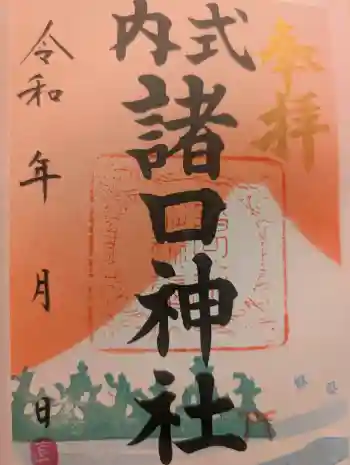 奉拝
式内
諸口神社
令和 年 月 日